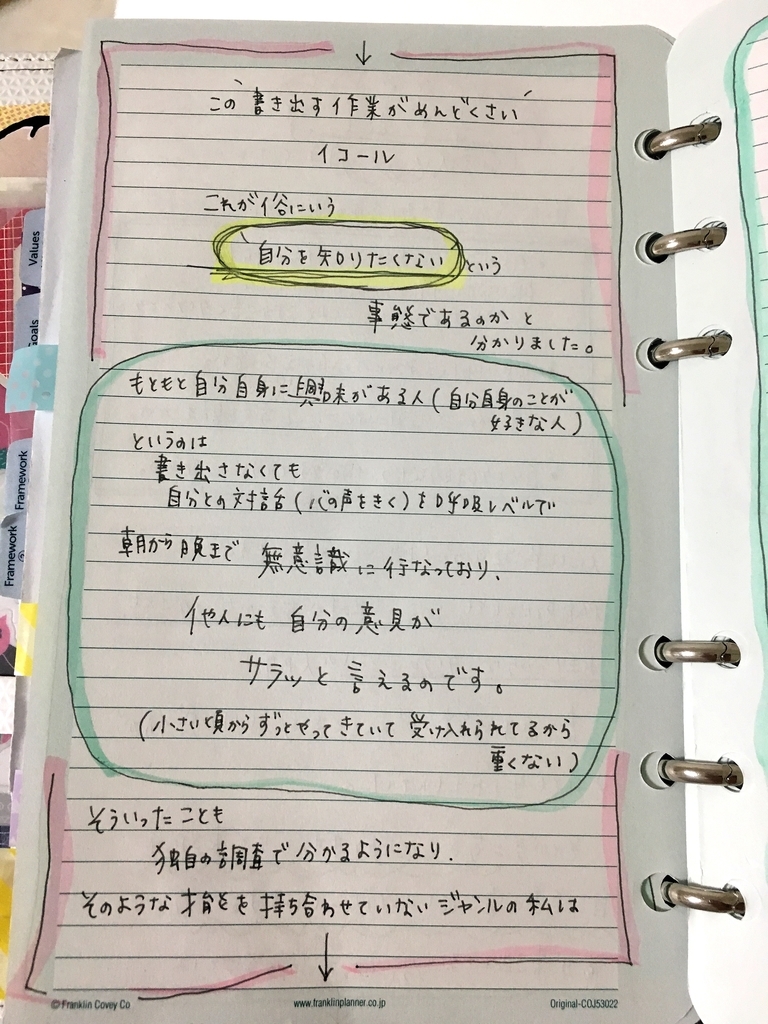 ↓
この「書き出す作業がめんどくさい」
イコール
これが俗にいう
「自分を知りたくない」という
事態であるのかと
分かりました。
もともと自分自身に興味がある人(自分自身のことが
好きな人)
というのは
書き出さなくても
自分との対話(心の声をきく)を呼吸レベルで
朝から晩まで 無意識に行なっており、
他人にも 自分の意見が
サラッと言えるのです。
(小さい頃からずっとやってきていて 受け入れられてるから
重くない)
そういったことも
独自の調査で分かるようになり、
そのような才能を持ち合わせていないジャンルの私は
↓
© Franklin Covey Co
www.franklinplanner.co.jp
Original-COJ53022
Values
Goals
Framework
Framework